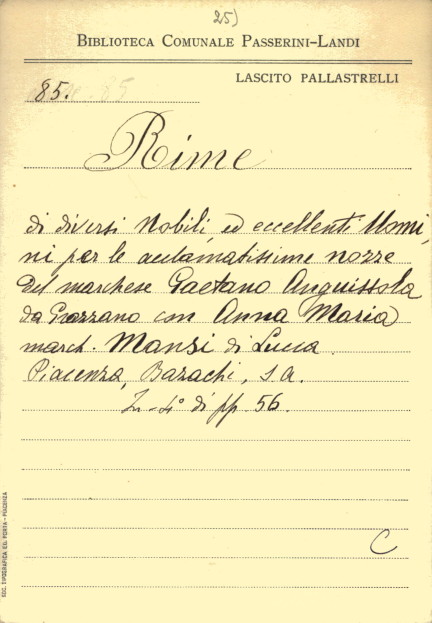 25)
BIBLIOTECA COMUNALE PASSERINI-LANDI
LASCITO PALLASTRELLI
85.
Rime
di diversi Nobili, ed eccellenti Uomi,
ni per le acclamatissime nozze
del marchese Gaetano Anguissola
da Grazzano con Anna Maria
march. Mansi di Lucca.
Piacenza, Bazachi, s. a.
In-4° di pp. 56.
C
SOC. TIPOGRAFICA ED. PORTA - PIACENZA